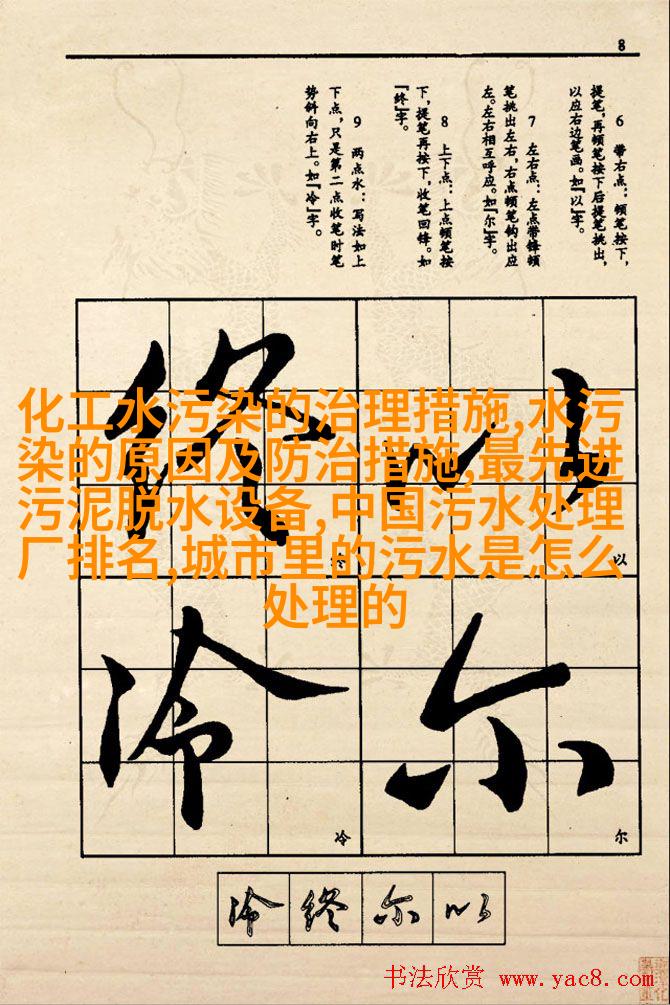 8
6 带右点：顿笔按下，
提笔，再顿笔按下后提笔挑出，
以应右边笔画。如『以』字。
7 左右点：左点带锋顿
笔挑出左右，右点顿笔钩出应
左。左右相互呼应。如『尔』字。
8 上下点：上点顿笔按
下，提笔再按下，收笔回锋。如
『终』字。
9 两点水：写法如上
下点，只是第二点收笔时笔
势斜向右上。如『冷』字。
化工水污染的治理措施,水污
染的原因及防治措施,最先进
污泥脱水设备,中国污水处理
厂排名,城市里的污水是怎么
处理的
终 以
以
冷 尔
冷 尔
冷 终 尔 以
书法欣赏 www.yac8.com